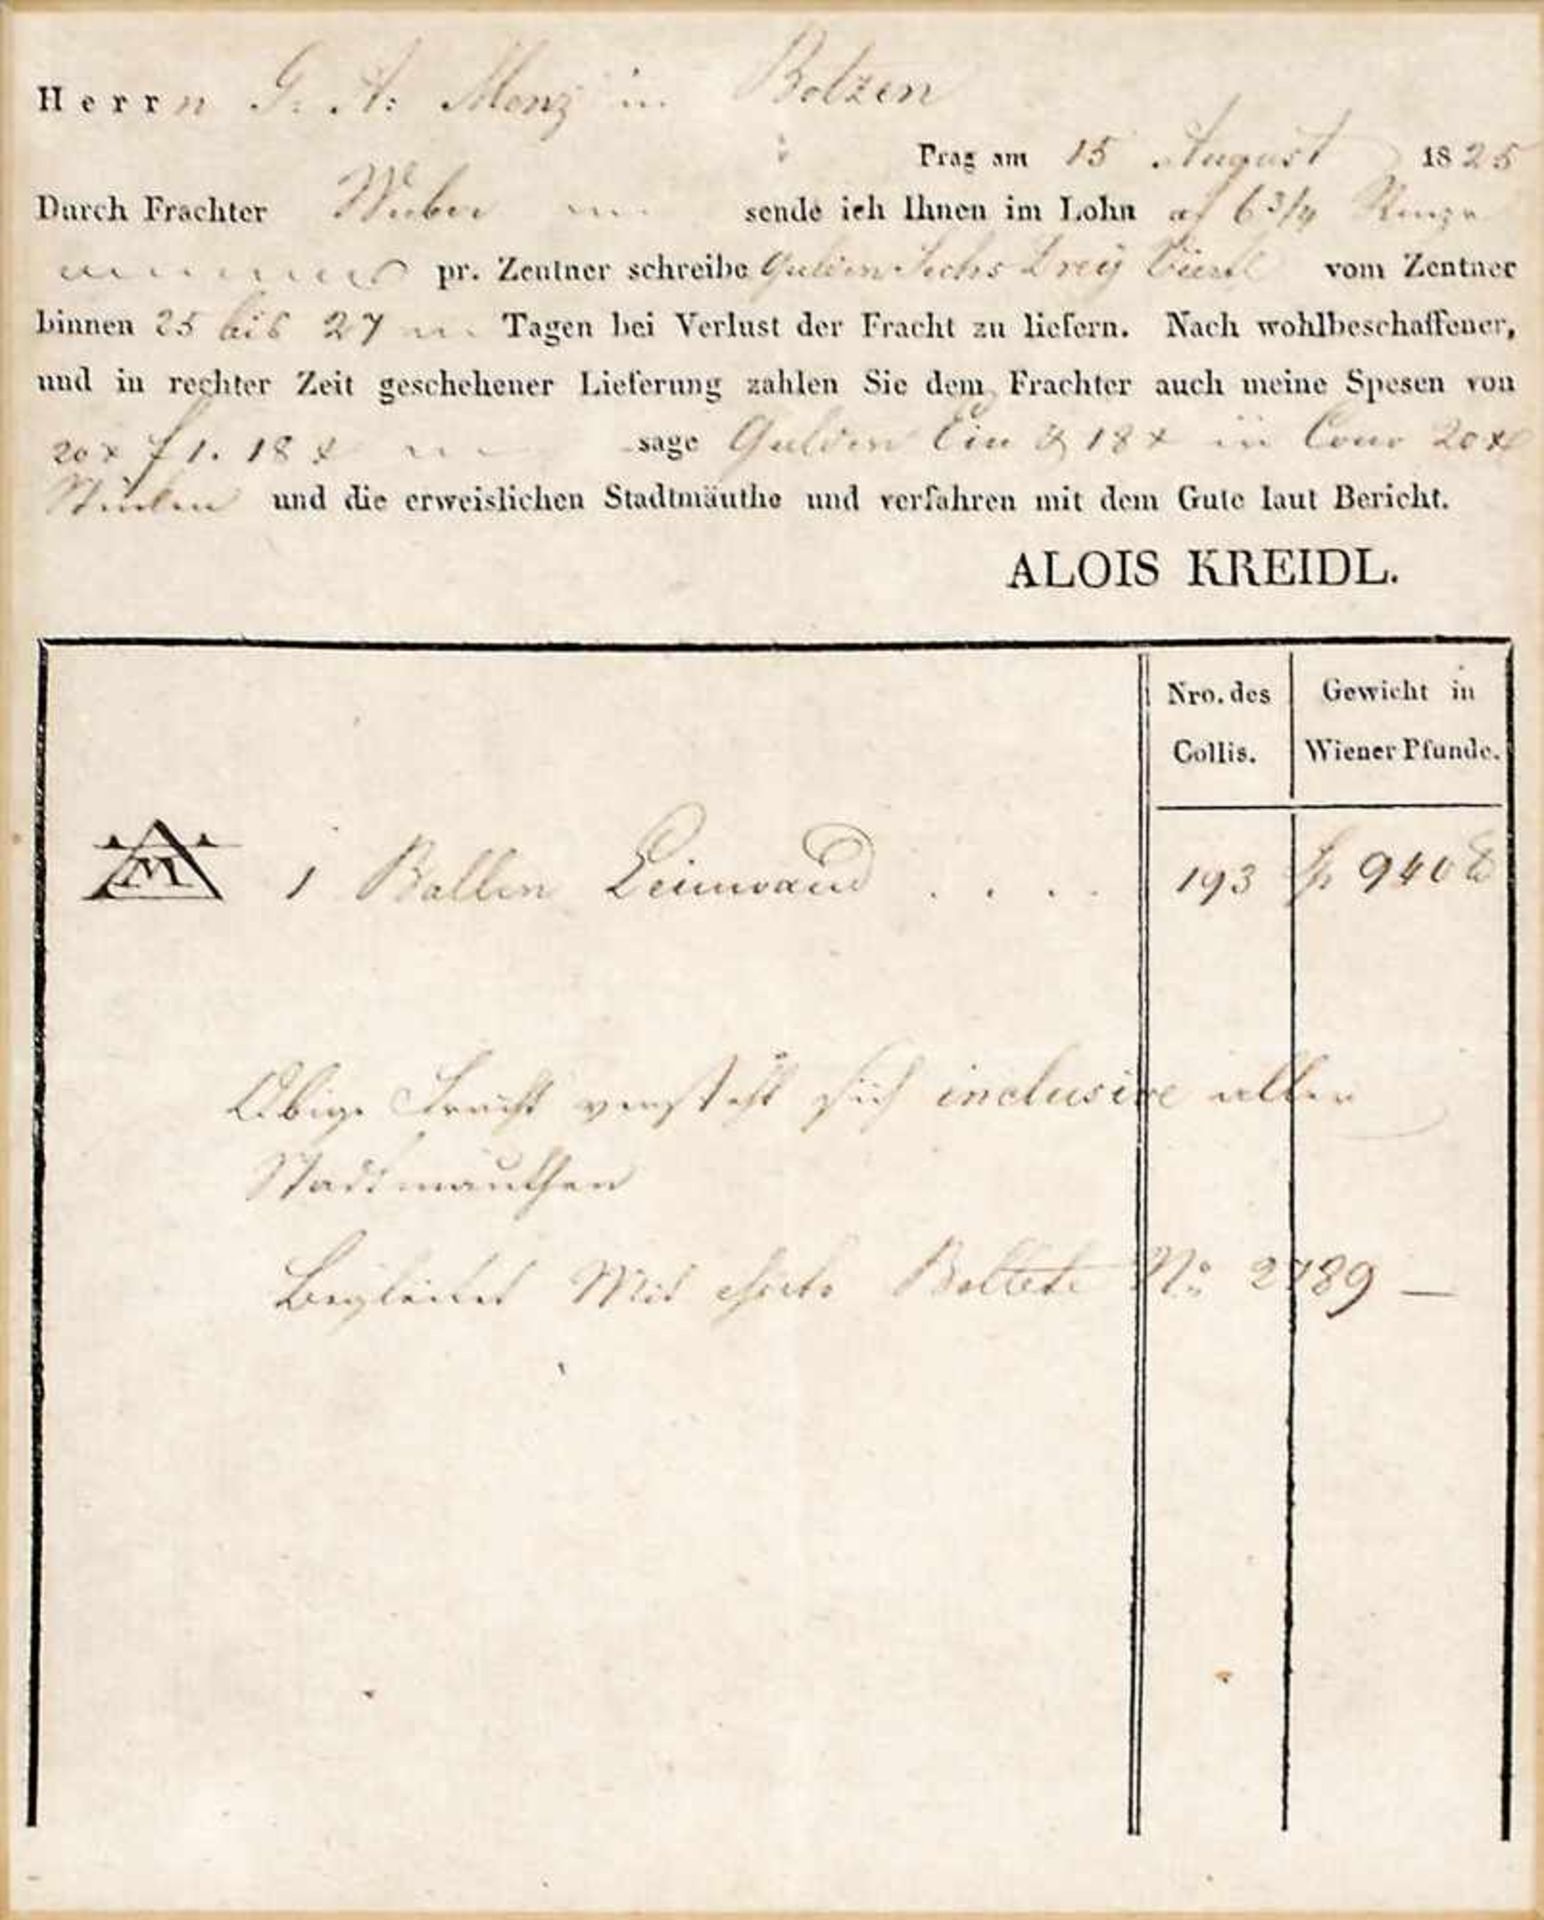 Herrn G. A: Menz in Botzen
Prag am 15 August 1825
Durch Frachter Weber sende ich Ihnen im Lohn a f 6 3/4
pr. Zentner schreibe Gulden Sechs Drey Viertl vom Zentner
binnen 25 bis 27 Tagen bei Verlust der Fracht zu liefern. Nach wohlbeschaffener,
und in rechter Zeit geschehener Lieferung zahlen Sie dem Frachter auch meine Spesen von
20x f 1. 18 x sage Gulden Ein & 18 x in Conv 20 x
und die erweislichen Stadtmäuthe und verfahren mit dem Gute laut Bericht.
ALOIS KREIDL.
Nro. des Gewicht in
Collis. Wiener Pfunde.
M 1 Ballen Leinwand . . . . 193 940 ℔
Obige Fracht versteht sich inclusive aller
Stadtmauthen
Begleitet Mit Bollete No 2789 —